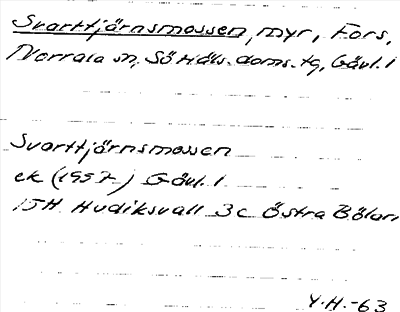 Svarttjärnsmossen, myr, Fors,
Norrala sn, Sö Häls. doms. tg, Gävl. l
Svarttjärnsmossen
ek (1957) Gävl. l.
15H Hudiksvall 3c Östra Bölan
Y.H.-63